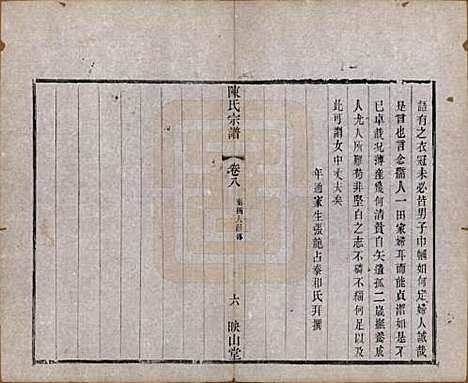 語有之衣冠未必皆男子巾幗如何定婦人誠哉
是言也言念孺人一田家婦耳而能貞潔如霜
已卓哉況薄產幾何清貧自矢遺孤二歲撫養成
人尤人所難苟非堅白之志不磷不緇何以致
此可謂女中丈夫矣
年通家生張龍占泰和氏拜撰
陳氏宗譜
卷八
六
映山堂